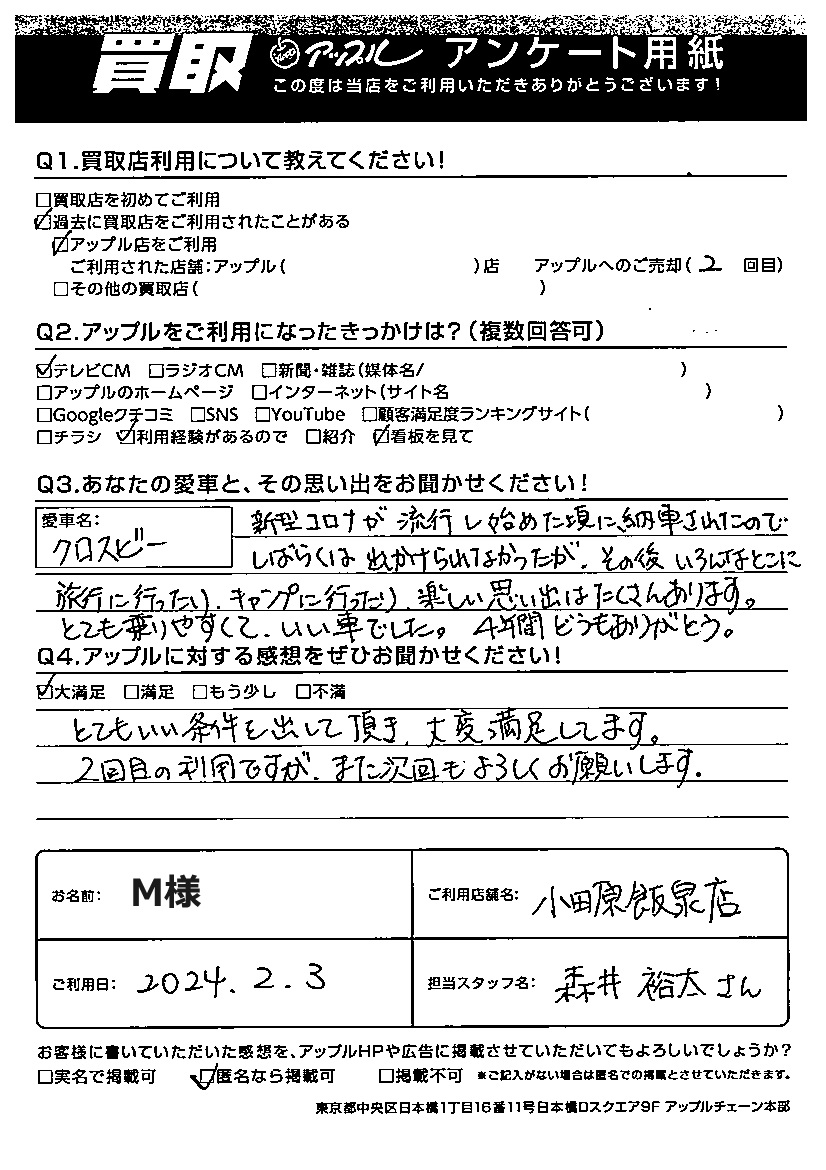 買取 アップル アンケート用紙
この度は当店をご利用いただきありがとうございます!
Q1.買取店利用について教えてください!
□買取店を初めてご利用
☑過去に買取店をご利用されたことがある
☑アップル店をご利用
ご利用された店舗:アップル( )店 アップルへのご売却( 2 回目)
□その他の買取店( )
Q2.アップルをご利用になったきっかけは?(複数回答可)
☑テレビCM □ラジオCM □新聞・雑誌(媒体名/ )
□アップルのホームページ □インターネット(サイト名 )
□Googleクチコミ □SNS □YouTube □顧客満足度ランキングサイト( )
□チラシ ☑利用経験があるので □紹介 ☑看板を見て
Q3.あなたの愛車と、その思い出をお聞かせください!
愛車名:
クロスビー
新型コロナが流行し始めた頃に納車されたので
しばらくは出かけられてなかったが、その後いろんなとこに
旅行に行ったり、キャンプに行ったり、楽しい思い出はたくさんあります。
とても乗りやすくて、いい車でした。4年間どうもありがとう。
Q4.アップルに対する感想をぜひお聞かせください!
☑大満足 □満足 □もう少し □不満
とてもいい条件を出して頂き、大変満足してます。
2回目の利用ですが、また次回もよろしくお願いします。
お名前: M様
ご利用店舗名: 小田原飯泉店
ご利用日: 2024.2.3
担当スタッフ名: 森井 裕太さん
お客様に書いていただいた感想を、アップルHPや広告に掲載させていただいてもよろしいでしょうか?
□実名で掲載可 ☑匿名なら掲載可 □掲載不可 *ご記入がない場合は匿名での掲載とさせていただきます。
東京都中央区日本橋1丁目16番11号日本橋ロスクエア9F アップルチェーン本部